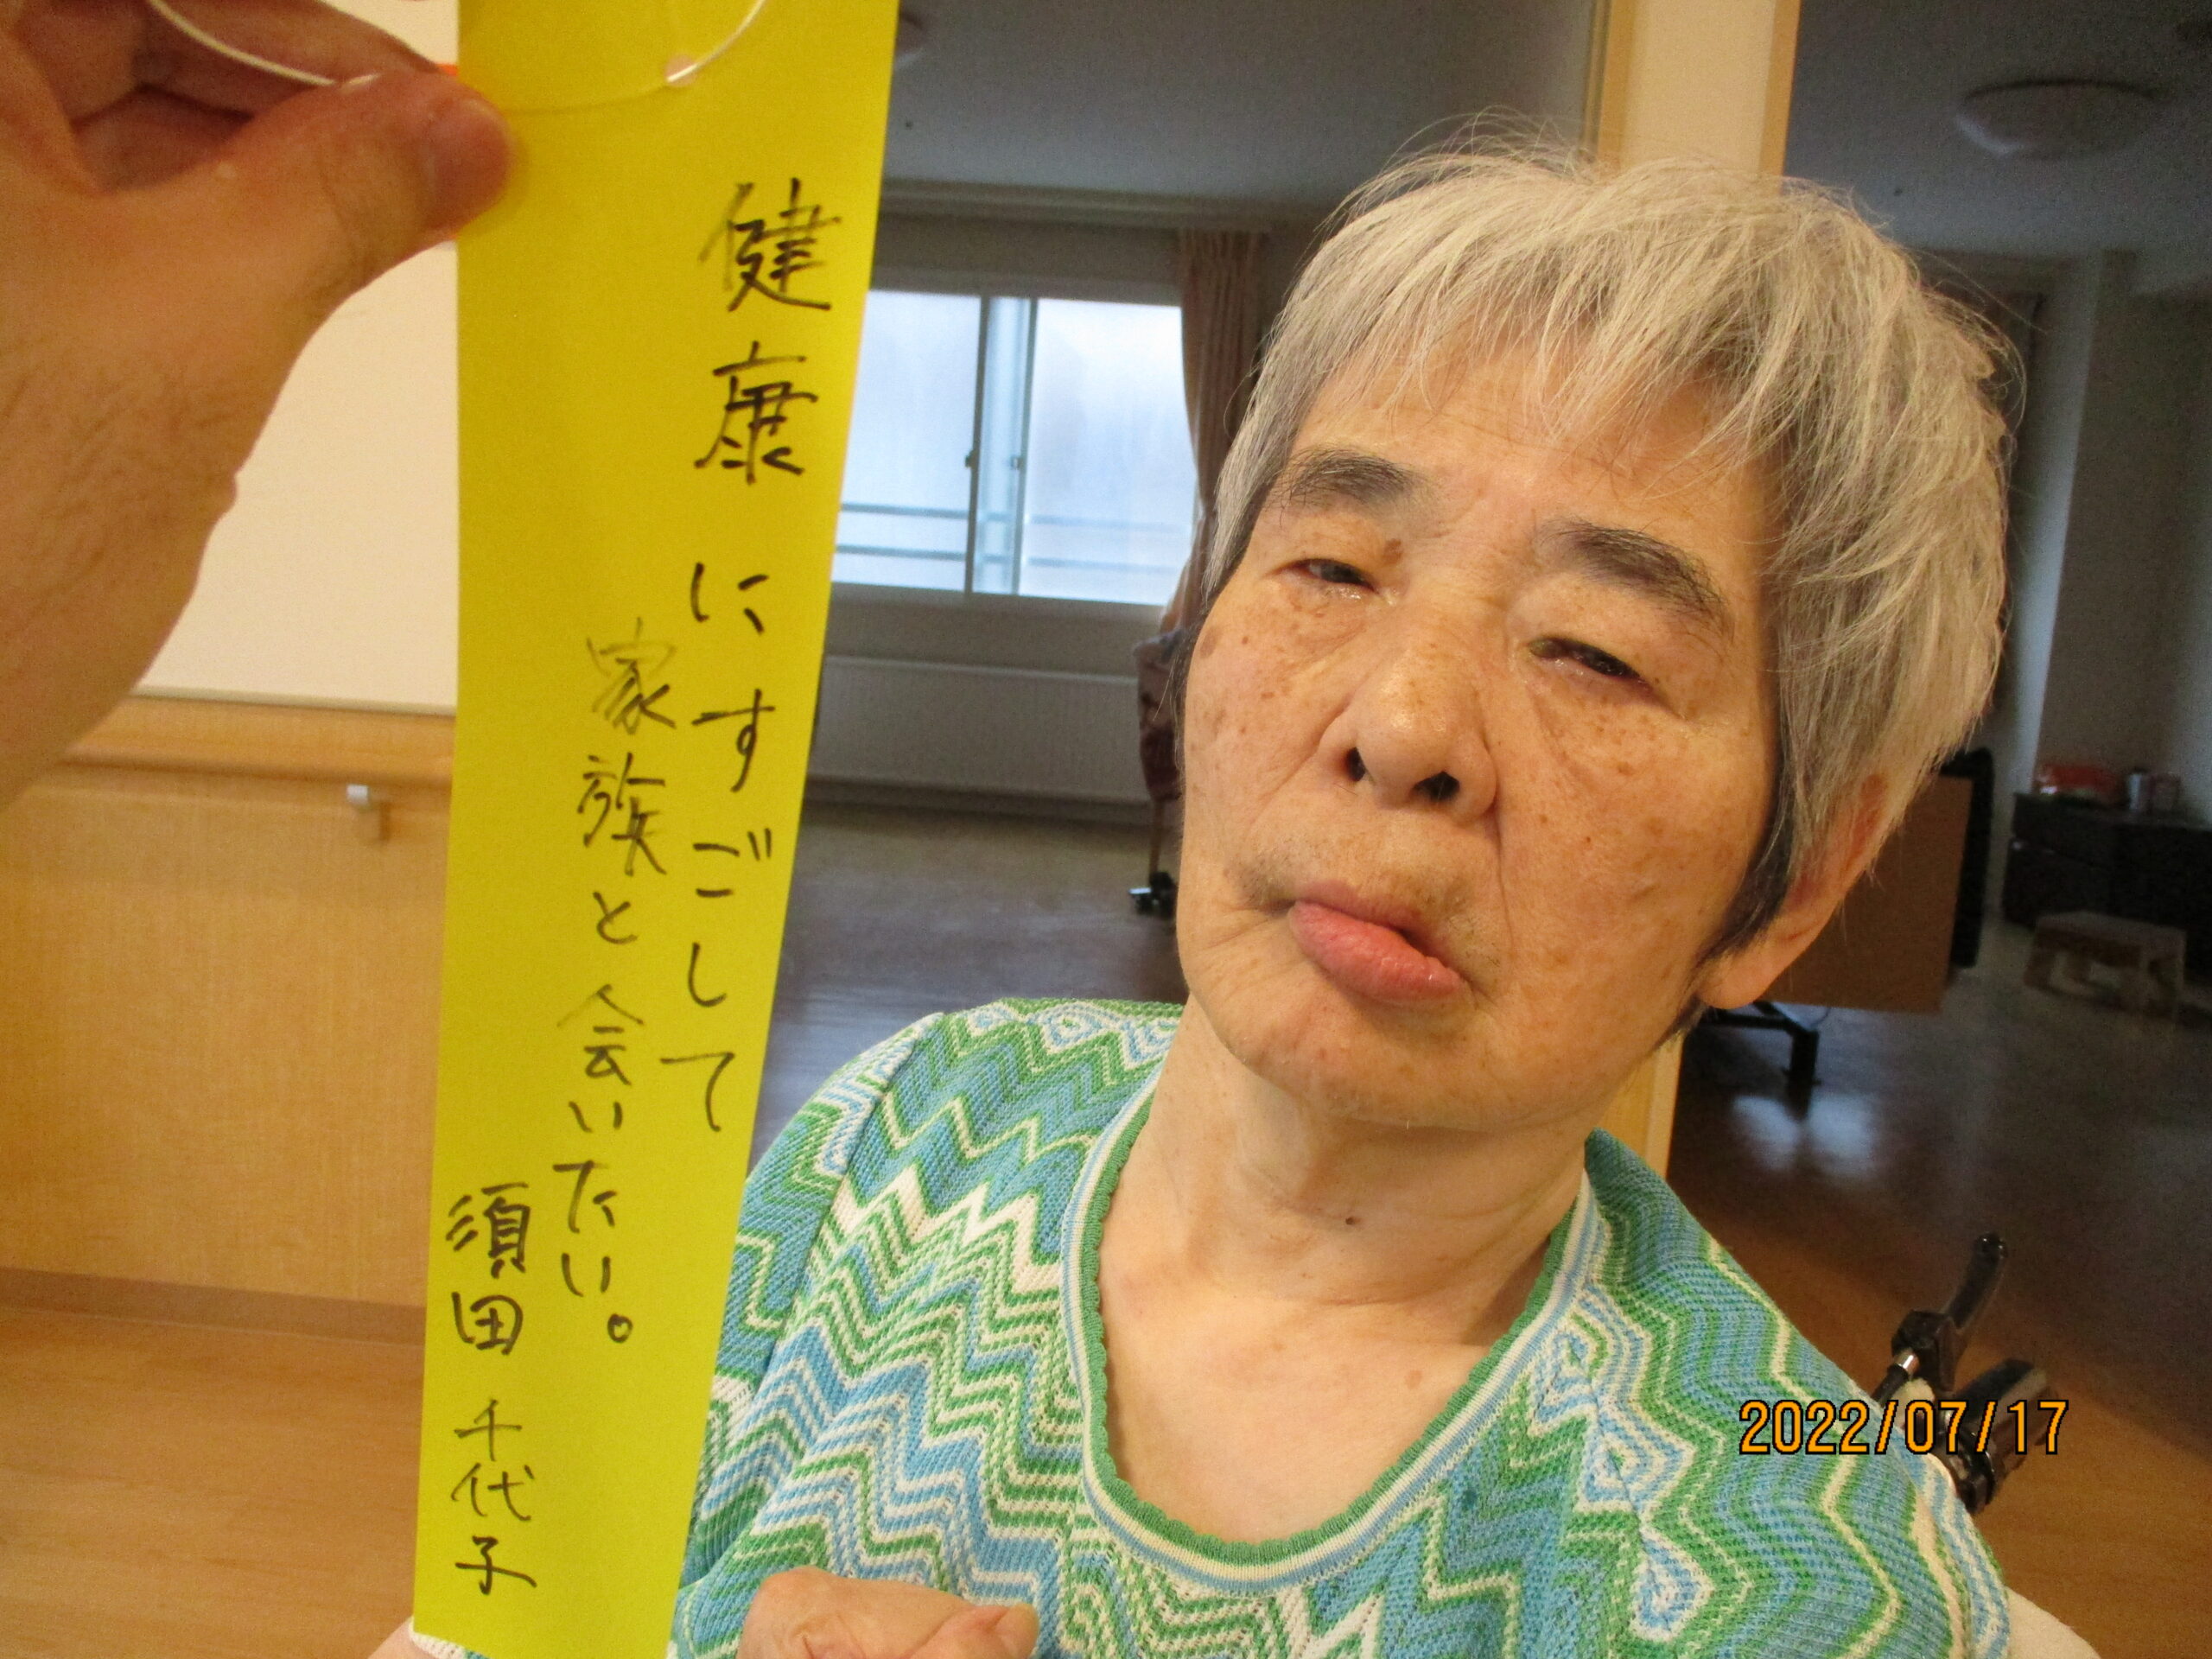 健康にすごして
家族と会いたい。
須田 千代子
2022/07/17